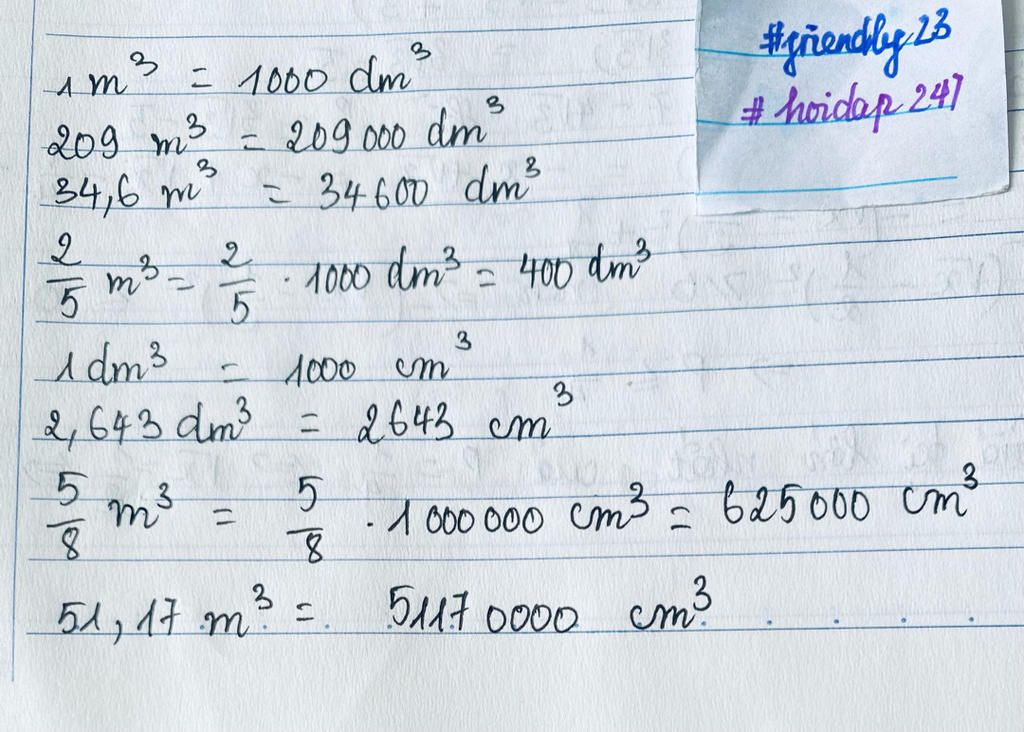 #friendly23
# hoidap 247
1 m³ = 1000 dm³
209 m³ = 209 000 dm³
34,6 m³ = 34 600 dm³
2/5 m³ = 2/5 . 1000 dm³ = 400 dm³
1 dm³ = 1000 cm³
2,643 dm³ = 2643 cm³
5/8 m³ = 5/8 . 1 000 000 cm³ = 625 000 cm³
51,17 m³ = 5117 0000 cm³